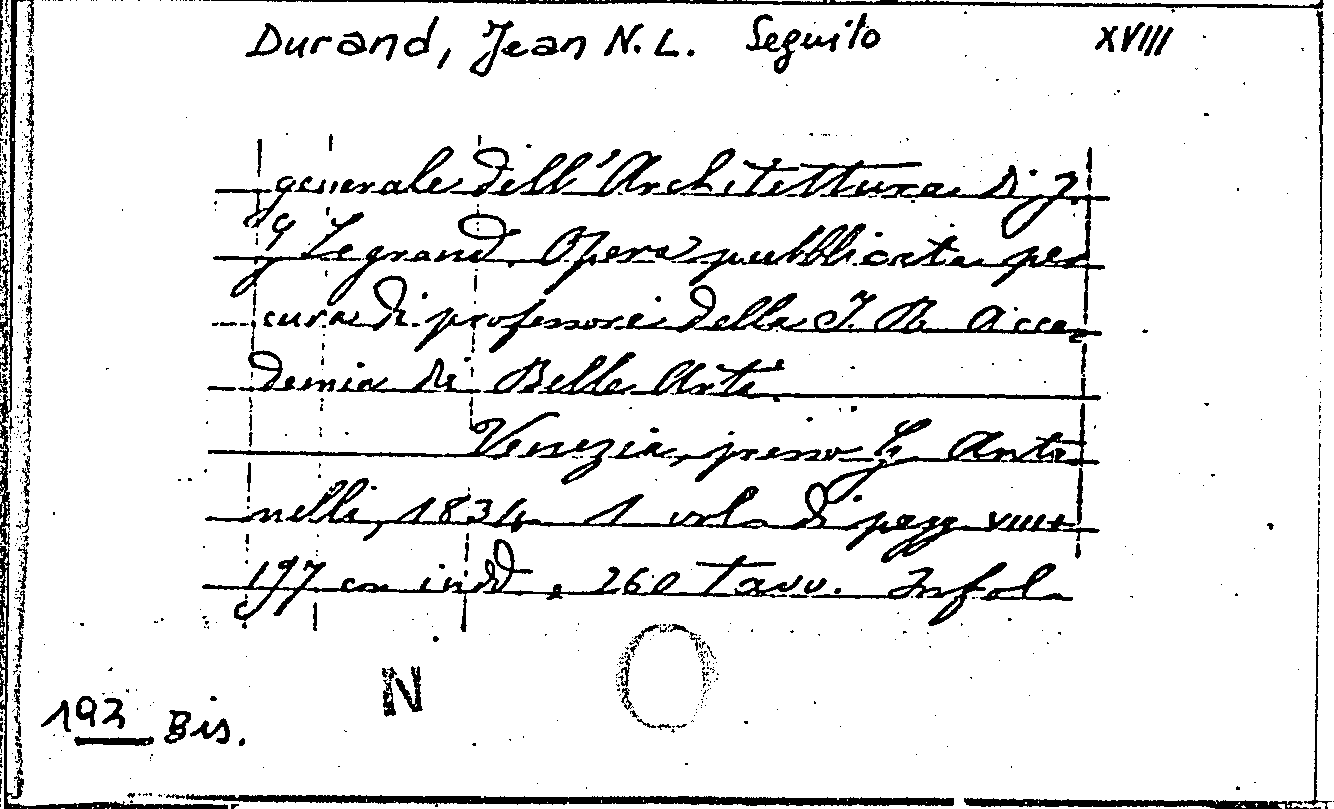 Durand, Jean N. L. Seguito XVIII
generale dell'Architettura di J.
G Legrand. Opera pubblicata per
cura di professori della I. R. Acca-
demia di Belle Arti.
Venezia, presso G. Anto
nelli, 1834 1 vol. di pagg VIII+
197 con ind. e 260 Tavv. Infol.
N
193 Bis.